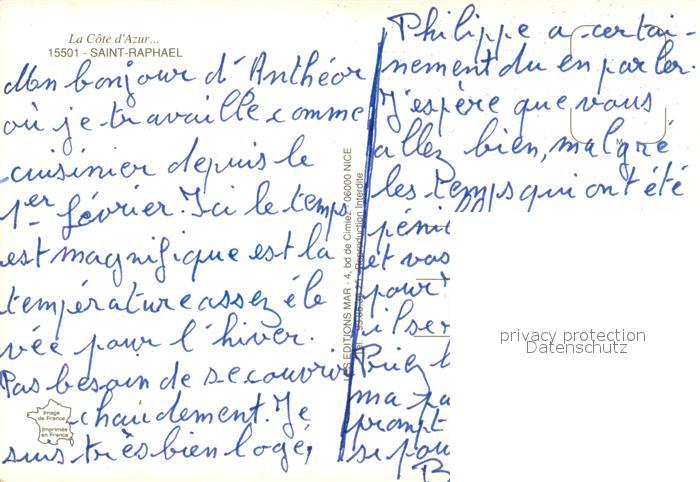 La Côte d'Azur...
15501 - SAINT-RAPHAEL
Mon bonjour d'Anthéor
où je travaille comme
cuisinier depuis le
1er février. Ici le temps
est magnifique est la
température assez éle
vée pour l'hiver.
Pas besoin de se couvrir
chaudement. Je
suis très bien logé,
Image
de France
Imprimée
en France
LES EDITIONS MAR - 4, bd de Cimiez - 06000 NICE
Reproduction Interdite
Philippe a certai-
nement du en parler.
J'espère que vous
allez bien, malgré
les temps qui ont été
péni
et vos
pour
il ser
Priez
ma
prompt
se pou
privacy protection
Datenschutz